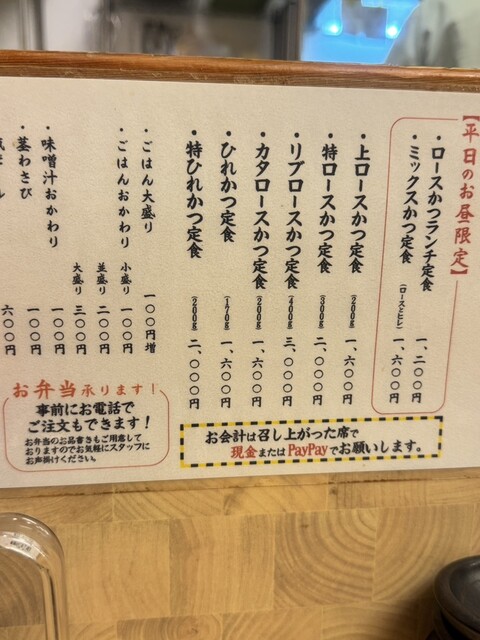 【平日のお昼限定】
・ロースかつランチ定食 一、二〇〇円
・ミックスかつ定食(ロースとヒレ) 一、六〇〇円
・上ロースかつ定食(200g) 一、六〇〇円
・特ロースかつ定食(300g) 二、〇〇〇円
・リブロースかつ定食(400g) 三、〇〇〇円
・カタロースかつ定食(200g) 一、六〇〇円
・ひれかつ定食(170g) 一、六〇〇円
・特ひれかつ定食(200g) 二、〇〇〇円
・ごはん大盛り 一〇〇円増
・ごはんおかわり 小盛り 一〇〇円
並盛り 二〇〇円
大盛り 三〇〇円
・味噌汁おかわり 一〇〇円
・茎わさび 一〇〇円
六〇〇円
お会計は召し上がった席で
現金またはPayPayでお願いします。
お弁当承ります!
事前にお電話で
ご注文もできます!
お弁当のお品書きもご用意して
おりますのでお気軽にスタッフに
お声掛けください。